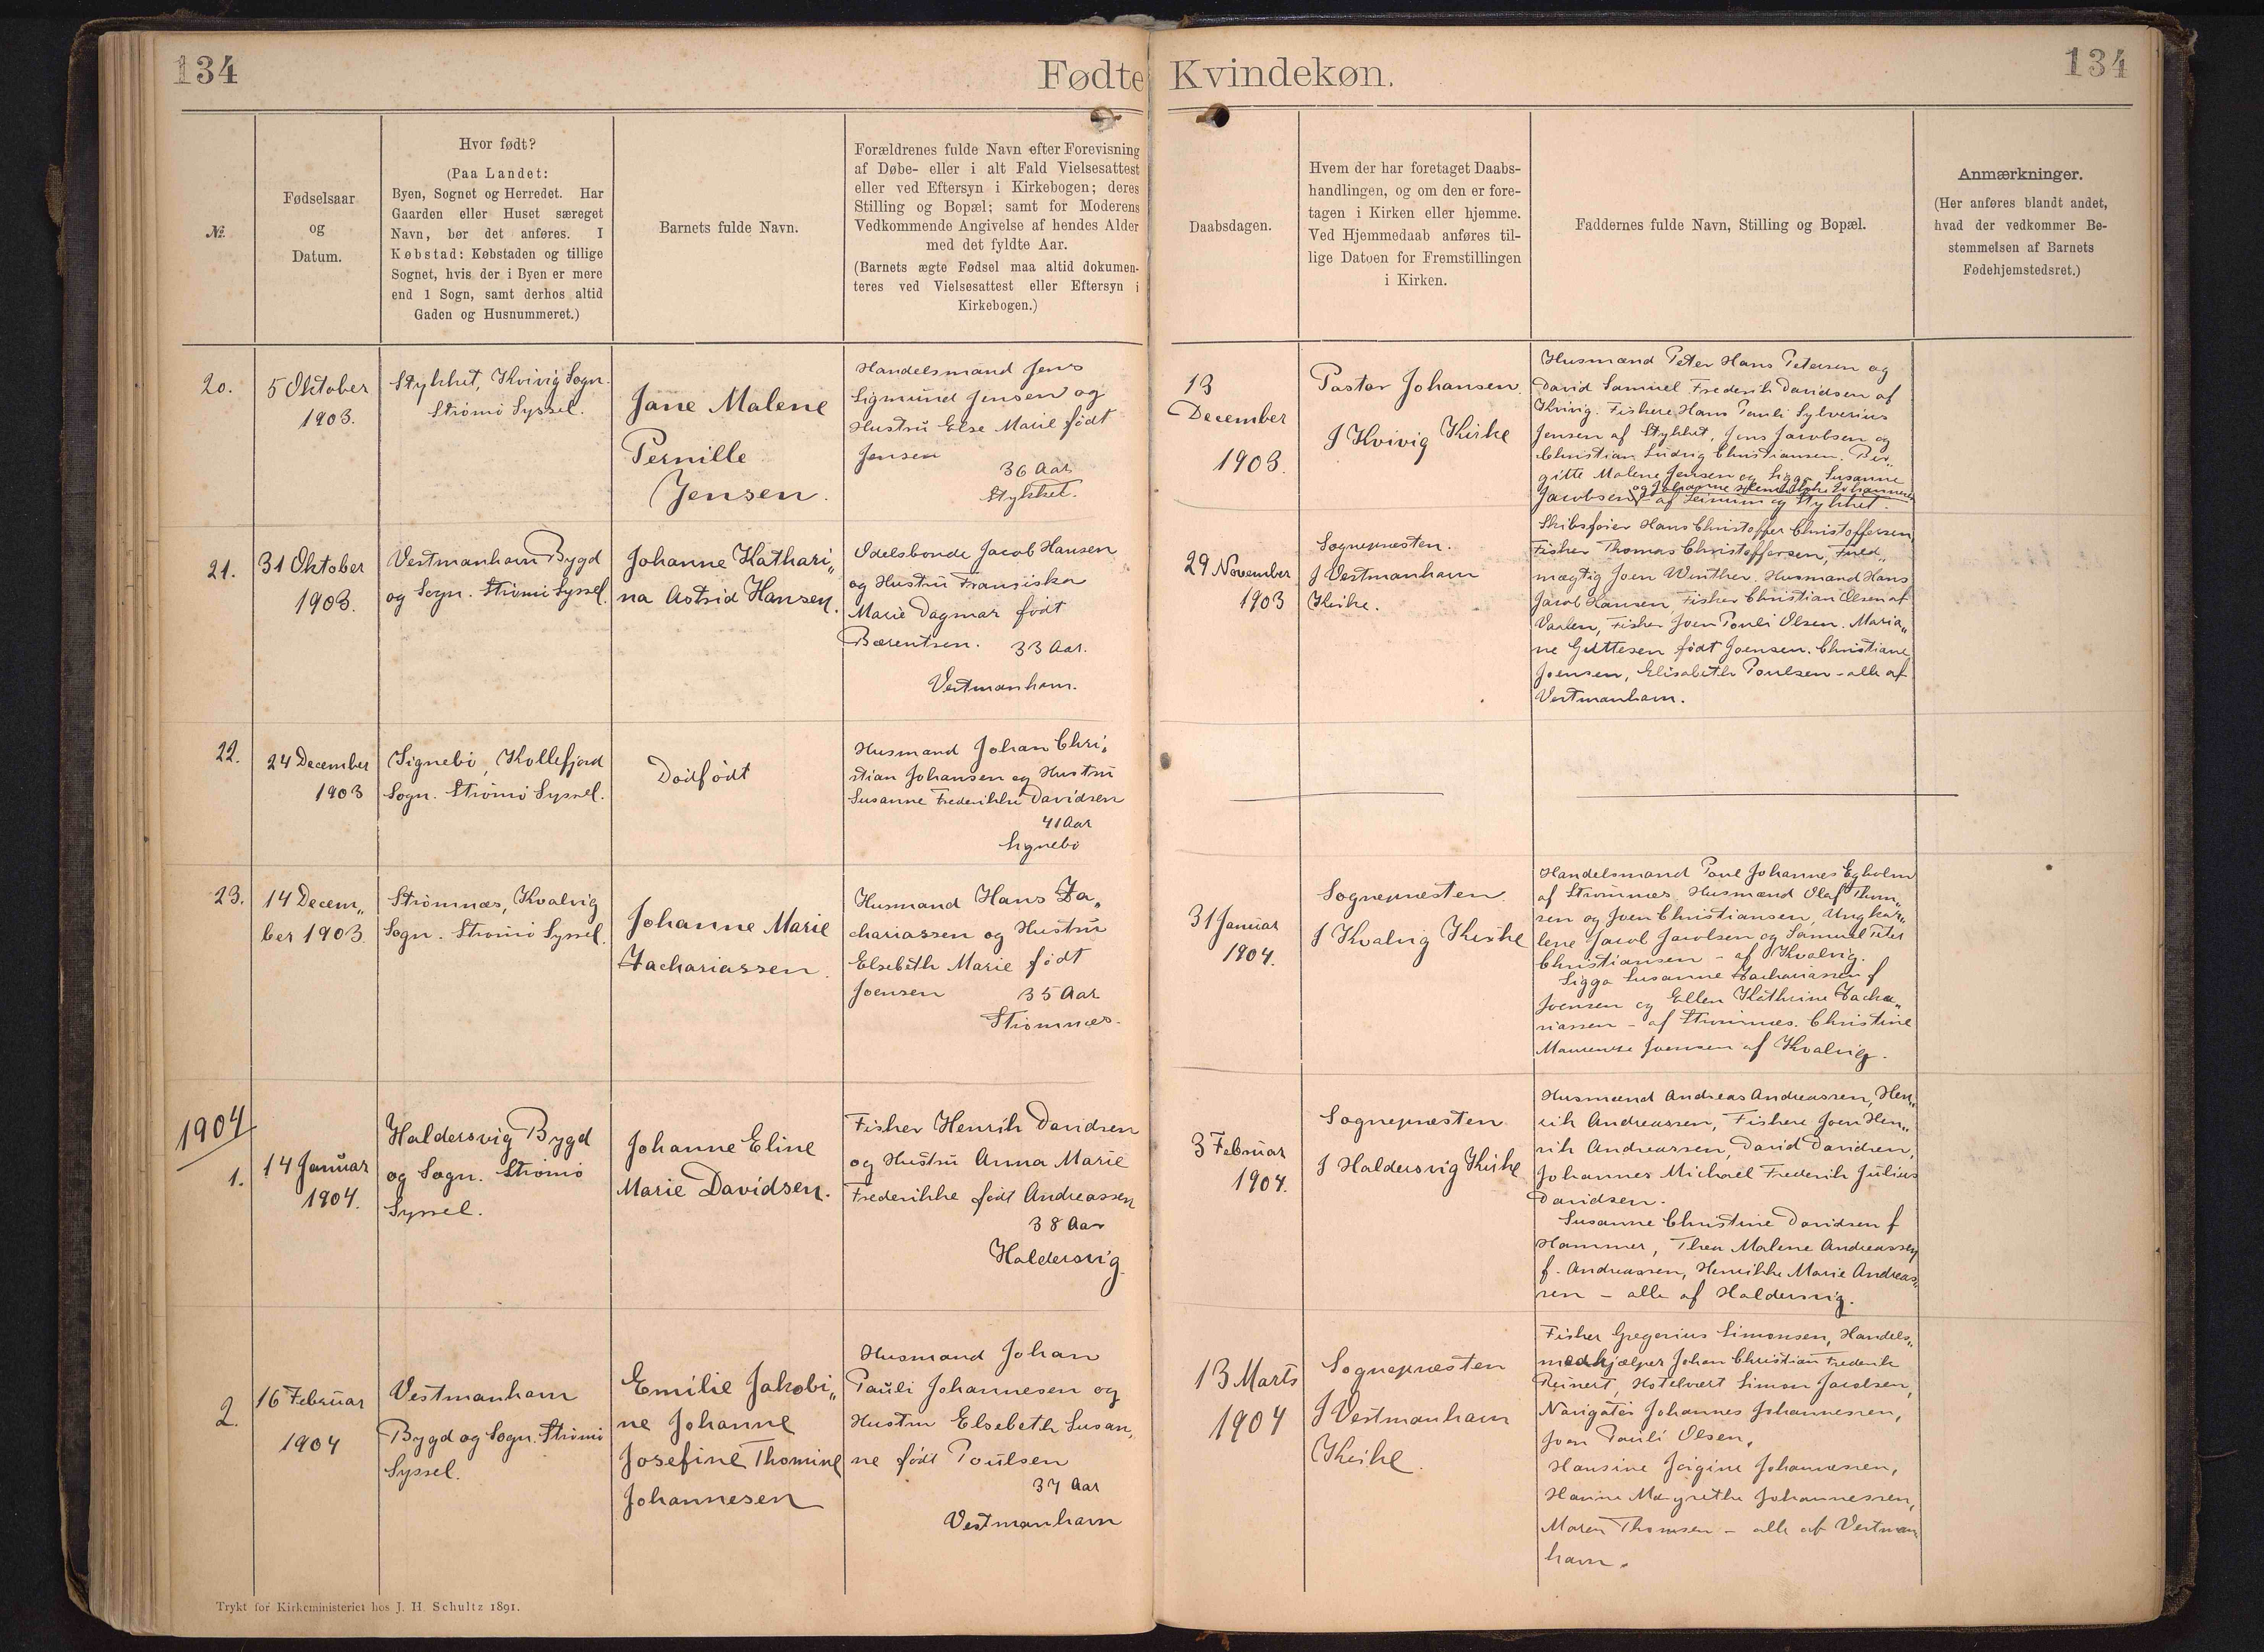 134
Fødte Kvindekøn.
134
№
Fødselsaar
og
Datum.
Hvor født?
(Paa Landet:
Byen, Sognet og Herredet. Har
Gaarden eller Huset særeget
Navn, bør det anføres. I
Købstad: Købstaden og tillige
Sognet, hvis der i Byen er mere
end 1 Sogn, samt derhos altid
Gaden og Husnummeret.)
Barnets fulde Navn.
Forældrenes fulde Navn efter Forevisning
af Døbe- eller i alt Fald Vielsesattest
eller ved Eftersyn i Kirkebogen; deres
Stilling og Bopæl; samt for Moderens
Vedkommende Angivelse af hendes Alder
med det fyldte Aar.
(Barnets ægte Fødsel maa altid dokumen-
teres ved Vielsesattest eller Eftersyn i
Kirkebogen.)
Daabsdagen.
Hvem der har foretaget Daabs-
handlingen, og om den er fore-
tagen i Kirken eller hjemme.
Ved Hjemmedaab anføres til-
lige Datoen for Fremstillingen
i Kirken.
Faddernes fulde Navn, Stilling og Bopæl.
Anmærkninger.
(Her anføres blandt andet,
hvad der vedkommer Be-
stemmelsen af Barnets
Fødehjemstedsret.)
20.
5 Oktober
1903.
Stykket, Kvivig Sogn.
Strömö Syssel.
Jane Malene
Pernille
Jensen.
Handelsmand Jens
Sigmund Jensen og
Hustru Else Marie født
Jensen
36 Aar
Stykket.
13
December
1903.
Pastor Johansen.
I Kvivig Kirke
Husmænd Peter Hans Petersen og
David Samuel Frederik Davidsen af
Kvivig. Fiskere Hans Pauli Sylverius
Jensen af Stykket, Jens Jacobsen og
Christian Ludvig Christiansen. Bir„
gitte Malene Jensen og Sigga Susanne
og Johanne
Jacobsen - af Leinum og Stykket.
21.
31 Oktober
1903.
Vestmanhavn Bygd
og Sogn. Strömö Syssel.
Johanne Kathari„
na Astrid Hansen.
Odelsbonde Jacob Hansen
og Hustru Fransiska
Marie Dagmar født
Bærentsen. 33 Aar.
Vestmanhavn.
29 November
1903
Sognepræsten.
I Vestmanhavn
Kirke.
Skibsfører Hans Christoffer Christoffersen,
Fisker Thomas Christoffersen, Fuld„
mægtig Joen Winther. Husmand Hans
Jacob Hansen, Fisker Christian Olsen af
Vaalen, Fisker Joen Pouli Olsen. Maria„
ne Guttesen født Joensen. Christiane
Joensen, Elisabeth Poulsen - alle af
Vestmanhavn.
22.
24 December
1903
Signebö, Kollefjord
Sogn. Strömö Syssel.
Dödfödt
Husmand Johan Chri„
stian Johansen og Hustru
Susanne Frederikke Davidsen
41 Aar
Signebö
23.
14 Decem„
ber 1903.
Strömnæs, Kvalvig
Sogn. Strömö Syssel.
Johanne Marie
Zachariassen.
Husmand Hans Za„
chariassen og Hustru
Elsebeth Marie født
Joensen 35 Aar
Strömnæs.
31 Januar
1904.
Sognepræsten.
I Kvalvig Kirke
Handelsmand Poul Johannes Egholm
af Strömnæs. Husmænd Olaf Thom„
sen og Joen Christiansen, Ungkar„
lene Jacob Jacobsen og Samuel Peter
Christiansen - af Kvalvig.
Sigga Susanne Zachariassen f
Joensen og Ellen Kathrine Zacha„
riassen - af Strömnæs. Christine
Maurense Joensen af Kvalvig.
1904
1.
14 Januar
1904.
Haldersvig Bygd
og Sogn. Strömö
Syssel.
Johanne Eline
Marie Davidsen.
Fisker Henrik Davidsen
og Hustru Anna Marie
Frederikke født Andreassen
38 Aar
Haldersvig.
3 Februar
1904.
Sognepræsten.
I Haldersvig Kirke
Husmænd Andreas Andreassen, Hen„
rik Andreassen, Fiskere Joen Hen„
rik Andreassen, David Davidsen,
Johannes Michael Frederik Julius
Davidsen.
Susanne Christine Davidsen f
Hammer, Thea Malene Andreassen
f. Andreassen, Henrikke Marie Andreas„
sen - alle af Haldersvig.
2.
16 Februar
1904
Vestmanhavn
Bygd og Sogn. Strömö
Syssel.
Emilie Jakobi„
ne Johanne
Josefine Thomine
Johannesen
Husmand Johan
Pauli Johannesen og
Hustru Elsebeth Susan„
ne født Poulsen
37 Aar
Vestmanhavn
13 Marts
1904
Sognepræsten
I Vestmanhavn
Kirke.
Fisker Gregorius Simonsen, Handels„
medhjælper Johan Christian Frederik
Reinert, Hotelvært Simon Jacobsen,
Navigatör Johannes Johannessen,
Joen Pauli Olsen,
Hansine Jörgine Johannessen,
Hanne Magrethe Johannessen,
Maren Thomsen - alle af Vestman
havn.
Trykt for Kirkeministeriet hos J. H. Schultz 1891.